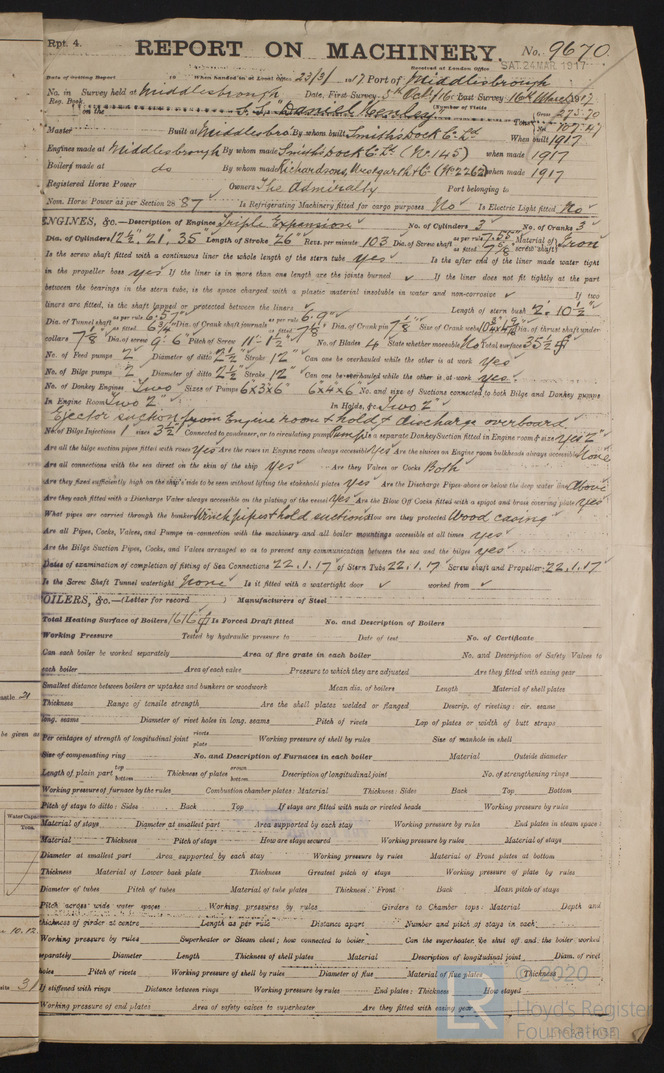 Rpt. 4.
REPORT ON MACHINERY. No. 9670
Received at London Office SAT. 24 MAR. 1917
Date of writing Report 19 When handed in at Local Office 23/3/ 1917 Port of Middlesbrough
No. in Survey held at Middlesbrough Date, First Survey 5th Oct/16 Last Survey 16th March 1917
Reg. Book. (Number of Visits
on the S.S. "Daniel Tons Gross 275.70
Net 107.47
Master Built at Middlesbro By whom built Smiths Dock Co. Ltd When built 1917
Engines made at Middlesbrough By whom made Smith's Dock Co. Ltd (No. 145) when made 1917
Boilers made at do By whom made Richardsons, Westgarth & Co (No. 2262) when made 1917
Registered Horse Power Owners The Admiralty Port belonging to
Nom. Horse Power as per Section 28 87 Is Refrigerating Machinery fitted for cargo purposes No Is Electric Light fitted No
ENGINES, &c.—Description of Engines Triple Expansion No. of Cylinders 3 No. of Cranks 3
Dia. of Cylinders 12½", 21", 35" Length of Stroke 26" Revs. per minute 103 Dia. of Screw shaft as per rule 7.55" as fitted 7⅝" Material of screw shaft Iron
Is the screw shaft fitted with a continuous liner the whole length of the stern tube yes Is the after end of the liner made water tight
in the propeller boss yes If the liner is in more than one length are the joints burned ✓ If the liner does not fit tightly at the part
between the bearings in the stern tube, is the space charged with a plastic material insoluble in water and non-corrosive ✓ If two
liners are fitted, is the shaft lapped or protected between the liners ✓ Length of stern bush 2'. 10½"
Dia. of Tunnel shaft as per rule 6.57" as fitted 6¾" Dia. of Crank shaft journals as per rule 6.9" as fitted 7⅛" Dia. of Crank pin 7⅛" Size of Crank webs Dia. of thrust shaft under
collars 7⅛" Dia. of screw 9'-6" Pitch of Screw 11'-1½" No. of Blades 4 State whether moveable No Total surface 35½ ft
No. of Feed pumps 2 Diameter of ditto 2½" Stroke 12" Can one be overhauled while the other is at work yes
No. of Bilge pumps 2 Diameter of ditto 2½" Stroke 12" Can one be overhauled while the other is at work yes
No. of Donkey Engines Two Sizes of Pumps 6x3x6" 6x4x6" No. and size of Suctions connected to both Bilge and Donkey pumps
In Engine Room Two 2" In Holds, &c. Two 2"
Ejector suction from Engine room & hold & discharge overboard
No. of Bilge Injections 1 sizes 3½" Connected to condenser, or to circulating pump Pump Is a separate Donkey Suction fitted in Engine room & size yes 2"
Are all the bilge suction pipes fitted with roses Yes Are the roses in Engine room always accessible Yes Are the sluices on Engine room bulkheads always accessible None
Are all connections with the sea direct on the skin of the ship Yes Are they Valves or Cocks Both
Are they fixed sufficiently high on the ship's side to be seen without lifting the stokehold plates Yes Are the Discharge Pipes above or below the deep water line Above
Are they each fitted with a Discharge Valve always accessible on the plating of the vessel Yes Are the Blow Off Cocks fitted with a spigot and brass covering plate yes
What pipes are carried through the bunkers Winch pipes & hold suctions How are they protected Wood casing
Are all Pipes, Cocks, Valves, and Pumps in connection with the machinery and all boiler mountings accessible at all times yes
Are the Bilge Suction Pipes, Cocks, and Valves arranged so as to prevent any communication between the sea and the bilges yes
Dates of examination of completion of fitting of Sea Connections 22.1.17 of Stern Tube 22.1.17 Screw shaft and Propeller 22.1.17
Is the Screw Shaft Tunnel watertight None Is it fitted with a watertight door ✓ worked from ✓
OILERS, &c.—(Letter for record ) Manufacturers of Steel
Total Heating Surface of Boilers 1616 ft Is Forced Draft fitted No. and Description of Boilers
Working Pressure Tested by hydraulic pressure to Date of test No. of Certificate
Can each boiler be worked separately Area of fire grate in each boiler No. and Description of Safety Valves to
each boiler Area of each valve Pressure to which they are adjusted Are they fitted with easing gear
Smallest distance between boilers or uptakes and bunkers or woodwork Mean dia. of boilers Length Material of shell plates
Thickness Range of tensile strength Are the shell plates welded or flanged Descrip. of riveting: cir. seams
long. seams Diameter of rivet holes in long. seams Pitch of rivets Lap of plates or width of butt straps
Per centages of strength of longitudinal joint rivets plate Working pressure of shell by rules Size of manhole in shell
Size of compensating ring No. and Description of Furnaces in each boiler Material Outside diameter
Length of plain part top bottom Thickness of plates crown bottom Description of longitudinal joint No. of strengthening rings
Working pressure of furnace by the rules Combustion chamber plates: Material Thickness: Sides Back Top Bottom
Pitch of stays to ditto: Sides Back Top If stays are fitted with nuts or riveted heads Working pressure by rules
Material of stays Diameter at smallest part Area supported by each stay Working pressure by rules End plates in steam space:
Material Thickness Pitch of stays How are stays secured Working pressure by rules Material of stays
Diameter at smallest part Area supported by each stay Working pressure by rules Material of Front plates at bottom
Thickness Material of Lower back plate Thickness Greatest pitch of stays Working pressure of plate by rules
Diameter of tubes Pitch of tubes Material of tube plates Thickness: Front Back Mean pitch of stays
Pitch across wide water spaces Working pressures by rules Girders to Chamber tops: Material Depth and
thickness of girder at centre Length as per rule Distance apart Number and pitch of stays in each
Working pressure by rules Superheater or Steam chest; how connected to boiler Can the superheater be shut off and the boiler worked
separately Diameter Length Thickness of shell plates Material Description of longitudinal joint Diam. of rivet
holes Pitch of rivets Working pressure of shell by rules Diameter of flue Material of flue plates Thickness
If stiffened with rings Distance between rings Working pressure by rules End plates: Thickness How stayed
Working pressure of end plates Area of safety valves to superheater Are they fitted with easing gear
© 2020
Lloyd's Register
Foundation